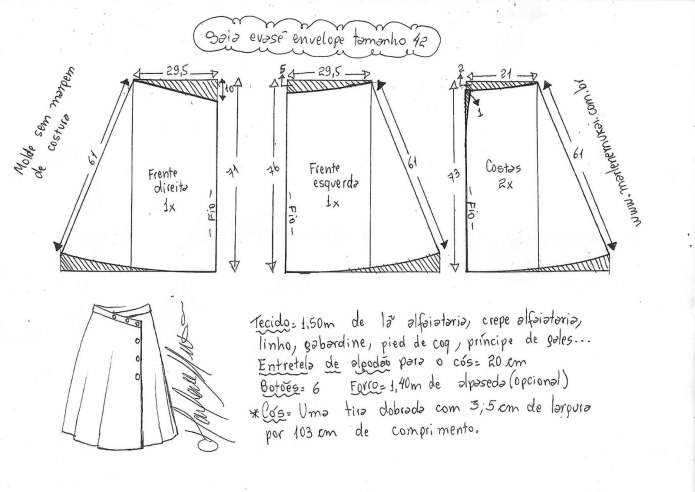 Saia evasê envelope tamanho 42
Molde sem margem
de costura
29,5
10
61
71
Frente
direita
1x
- Fio -
5
29,5
61
76
Frente
esquerda
1x
- Fio -
2
21
1
61
73
Costas
2x
- Fio -
www.marlenemukai.com.br
Tecido = 1,50m de lã alfaiataria, crepe alfaiataria,
linho, gabardine, pied de coq, príncipe de gales...
Entretela de algodão para o cós = 20 cm
Botões = 6 Forro = 1,40m de alpaseda (opcional)
*Cós = Uma tira dobrada com 3,5 cm de largura
por 103 cm de comprimento.